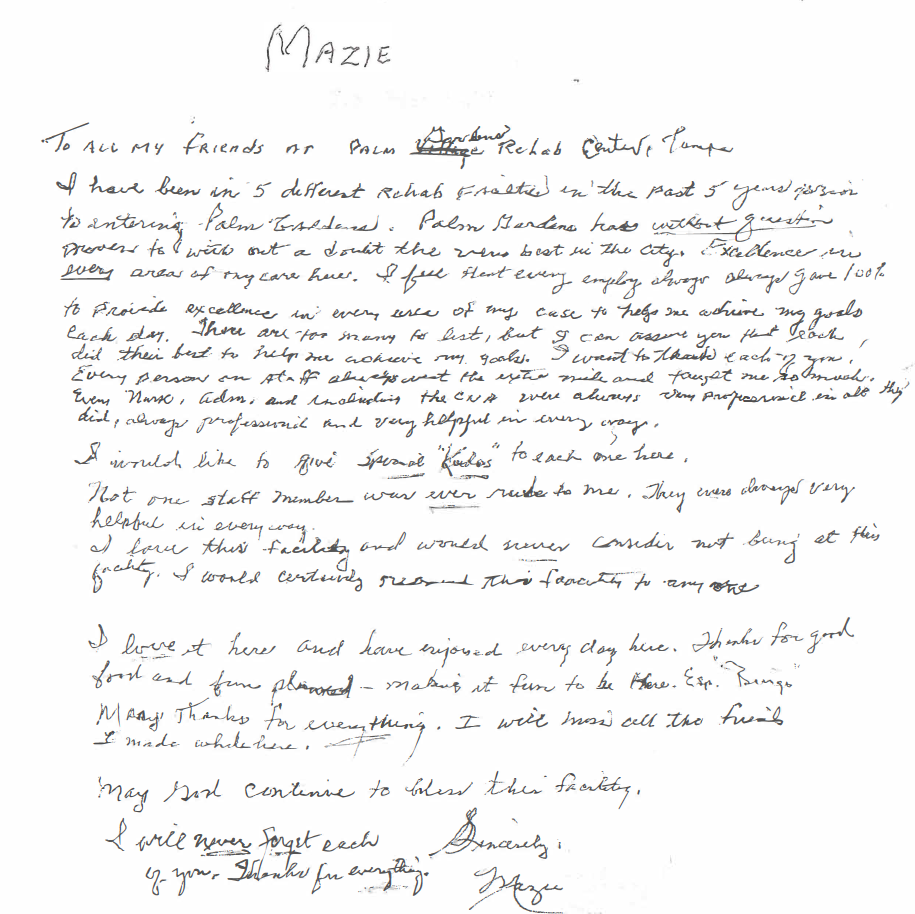 MAZIE
"To ALL MY friends at PALM Gardens Rehab Center, Tampa
I have been in 5 different Rehab in the past 5 years
to entering Palm Gardens. Palm Gardens has without question
proven to with out a doubt the very best in the city. Excellence in
every area of my care here. I feel that every employ always always gave 100%
to provide excellence in every area of my case to help me achieve my goals
each day. There are too many to list, but I can assure you that each,
did their best to help me achieve my goals. I want to thank each of you.
Every person on staff always went the extra mile and taught me so much.
Every Nurse, Adm. and including the CNA were always very professional in all they
did, always professional and very helpful in every way.
I would like to give special "Kudos" to each one here.
Not one staff member was ever rude to me. They were always very
helpful in every way.
I love this facility and would never consider not being at this
facility. I would certainly this facility to any one
I love it here and have enjoyed every day here. Thanks for good
food and fun planned – making it fun to be here. Esp. "Bingo"
Many Thanks for everything. I will miss all the friends
I made while here.
May God continue to bless this facility.
I will never forget each
of you. Thanks for everything.
Sincerely,
Mazie